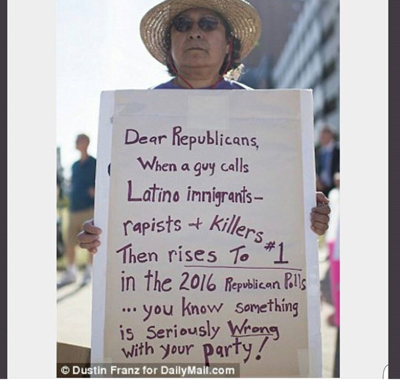 Dear Republicans,
When a guy calls
Latino immigrants—
rapists + killers
Then rises To #1
in the 2016 Republican Polls
... you know something
is seriously Wrong
with your party!
© Dustin Franz for DailyMail.com